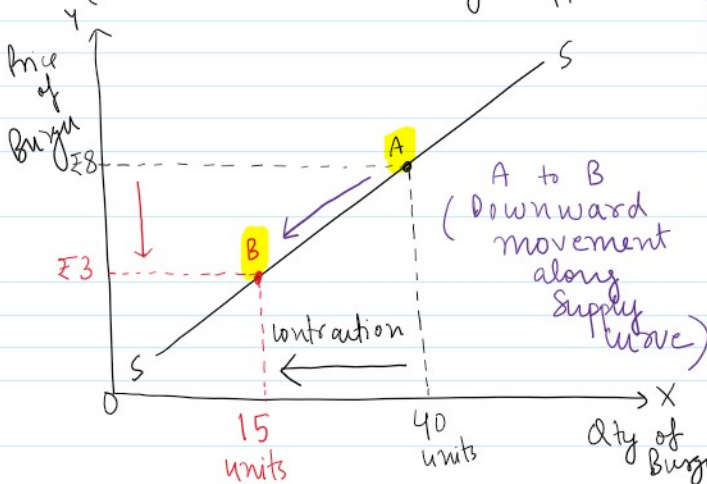 Y
Price
of
Burger
₹8
A
S
A to B
(Downward
movement
along
Supply
curve)
B
₹3
contraction
S
O
X
15
units
40
units
Qty of
Burge